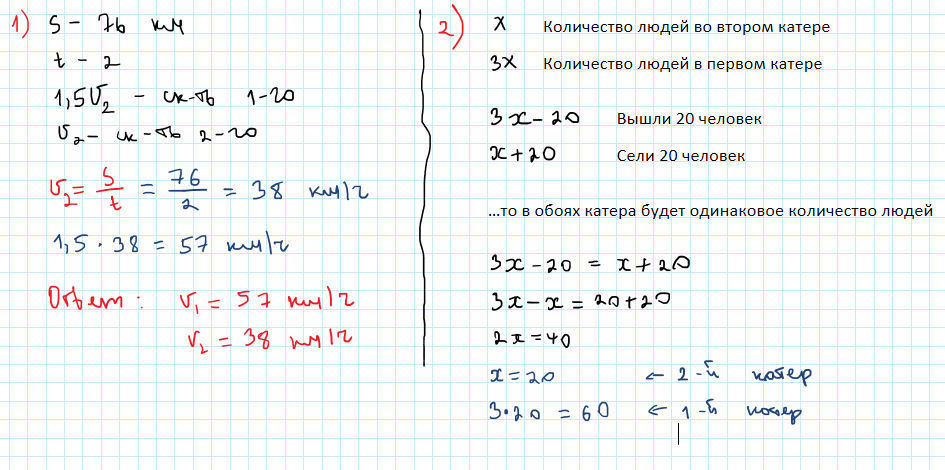 1) S - 76 км
t - 2
1,5V₂ - ск-ть 1-го
V₂ - ск-ть 2-го
V₂ = S/t = 76/2 = 38 км/ч
1,5 · 38 = 57 км/ч
Ответ: V₁ = 57 км/ч
V₂ = 38 км/ч
2) x Количество людей во втором катере
3x Количество людей в первом катере
3x - 20 Вышли 20 человек
x + 20 Сели 20 человек
...то в обоях катера будет одинаковое количество людей
3x - 20 = x + 20
3x - x = 20 + 20
2x = 40
x = 20 ← 2-й катер
3 · 20 = 60 ← 1-й катер